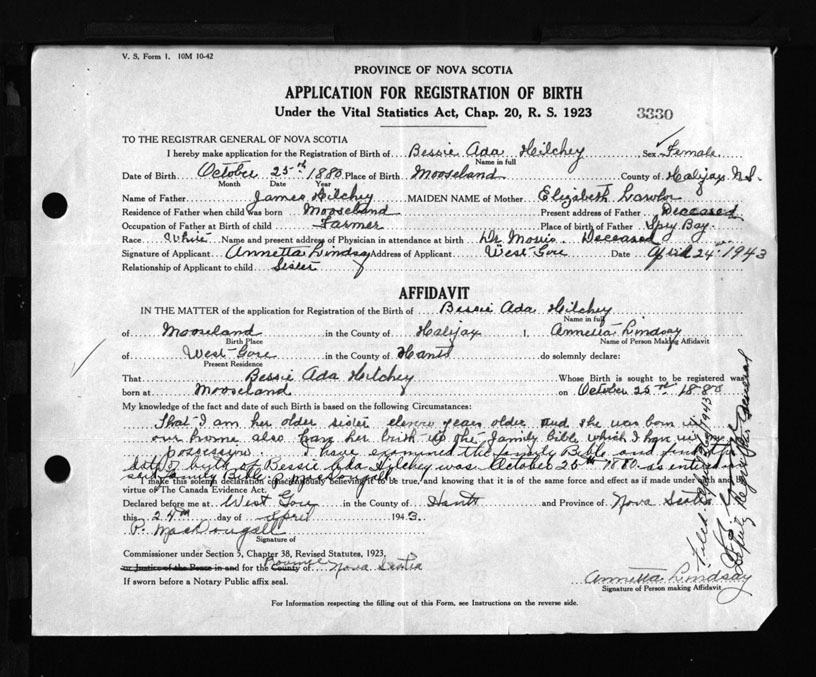 V. S. Form 1. 10M 10-42
PROVINCE OF NOVA SCOTIA
APPLICATION FOR REGISTRATION OF BIRTH
Under the Vital Statistics Act, Chap. 20, R. S. 1923 3330
TO THE REGISTRAR GENERAL OF NOVA SCOTIA
I hereby make application for the Registration of Birth of Bessie Ada Hilchey Sex Female
Name in full
Date of Birth October 25th 1880 Place of Birth Mooseland County of Halifax N.S.
Month Date Year
Name of Father James Hilchey MAIDEN NAME of Mother Elizabeth Lawlor
Residence of Father when child was born Mooseland Present address of Father Deceased
Occupation of Father at Birth of child Farmer Place of birth of Father Spry Bay
Race White Name and present address of Physician in attendance at birth Dr Morris Deceased
Signature of Applicant Annetta Lindsay Address of Applicant West Gore Date April 24th 1943
Relationship of Applicant to child Sister
AFFIDAVIT
IN THE MATTER of the application for Registration of the Birth of Bessie Ada Hilchey
Name in full
of Mooseland in the County of Halifax I, Annetta Lindsay
Birth Place Name of Person Making Affidavit
of West Gore in the County of Hants do solemnly declare:
Present Residence
That Bessie Ada Hilchey Whose Birth is sought to be registered was
born at Mooseland on October 25th 1880
My knowledge of the fact and date of such Birth is based on the following Circumstances:
That I am her older sister eleven years older and she was born in
our home also her birth the family bible which I have in my
possession. I have examined the family Bible and find the
date of birth of Bessie Ada Hilchey was October 25th 1880 as entered
said family Bible
I make this solemn declaration conscientiously believing it to be true, and knowing that it is of the same force and effect as if made under oath and
virtue of The Canada Evidence Act.
Declared before me at West Gore in the County of Hants and Province of Nova Scotia
this 24th day of April 1943.
P. MacDougall
Signature of
Commissioner under Section 5, Chapter 38, Revised Statutes, 1923,
or Justice of the Peace in and for the County of Province Nova Scotia
If sworn before a Notary Public affix seal.
Annetta Lindsay
Signature of Person making Affidavit
For Information respecting the filling out of this Form, see Instructions on the reverse side.
Filed April 1943
Deputy Registrar General